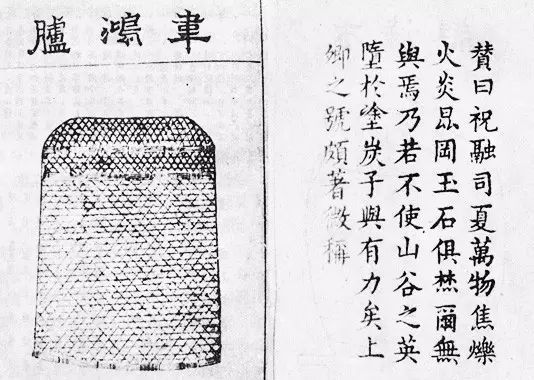 贊曰祝融司夏萬物焦爍
火炎昆岡玉石俱焚爾無
與焉乃若不使山谷之英
墮於塗炭子與有力矣上
卿之號頗著微稱
韋鴻臚